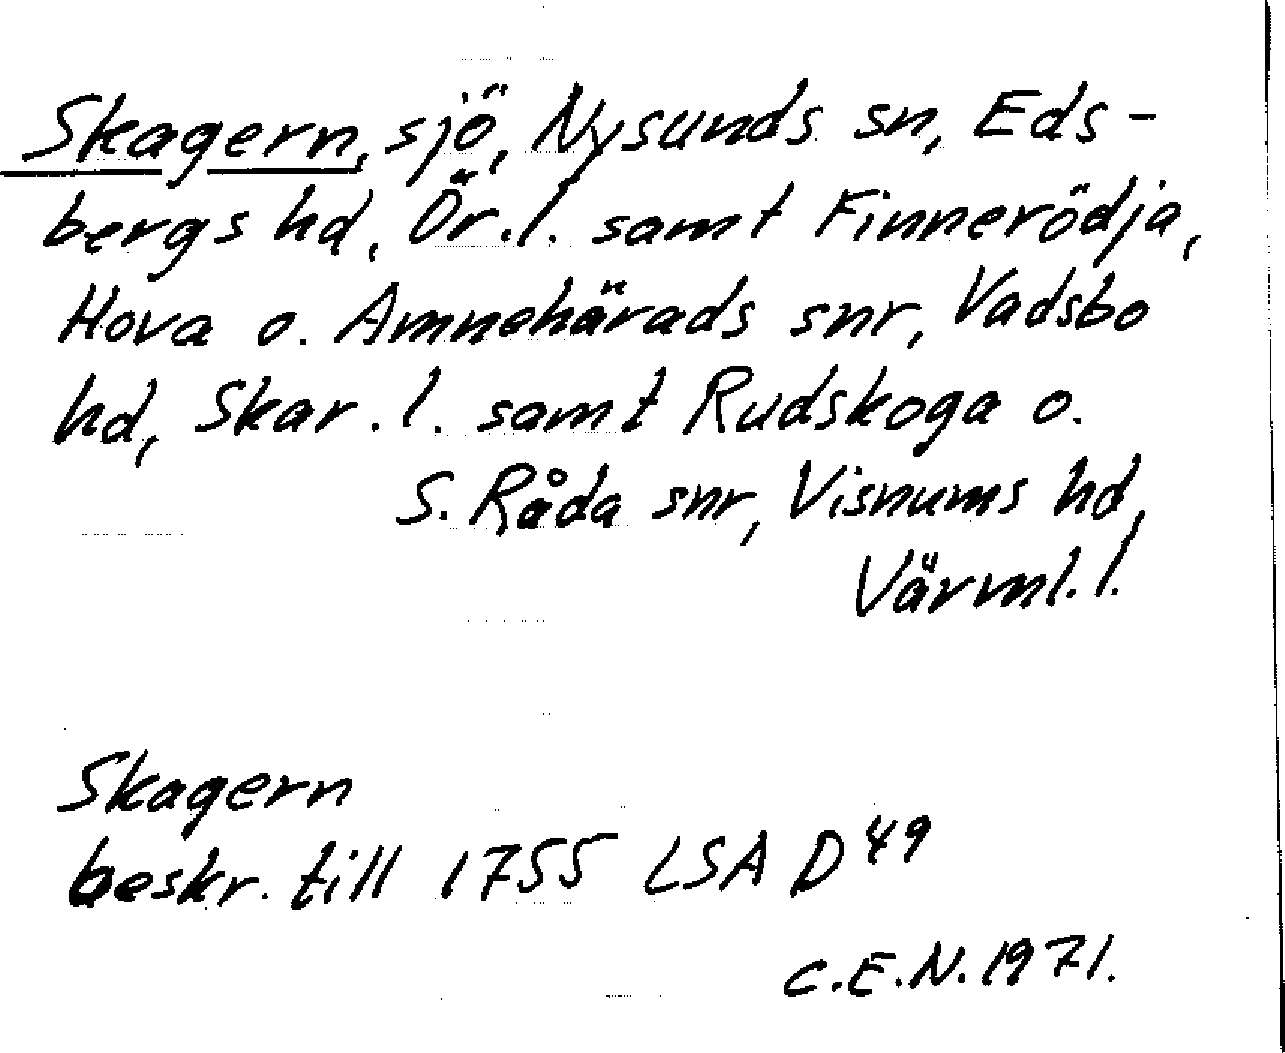 Skagern, sjö, Nysunds sn, Eds-
bergs hd, Ör.l. samt Finnerödja,
Hova o. Amnehärads snr, Vadsbo
hd, Skar.l. samt Rudskoga o.
S. Råda snr, Visnums hd,
Värml.l.
Skagern
beskr. till 1755 LSA D 49
C.E.N. 1971.